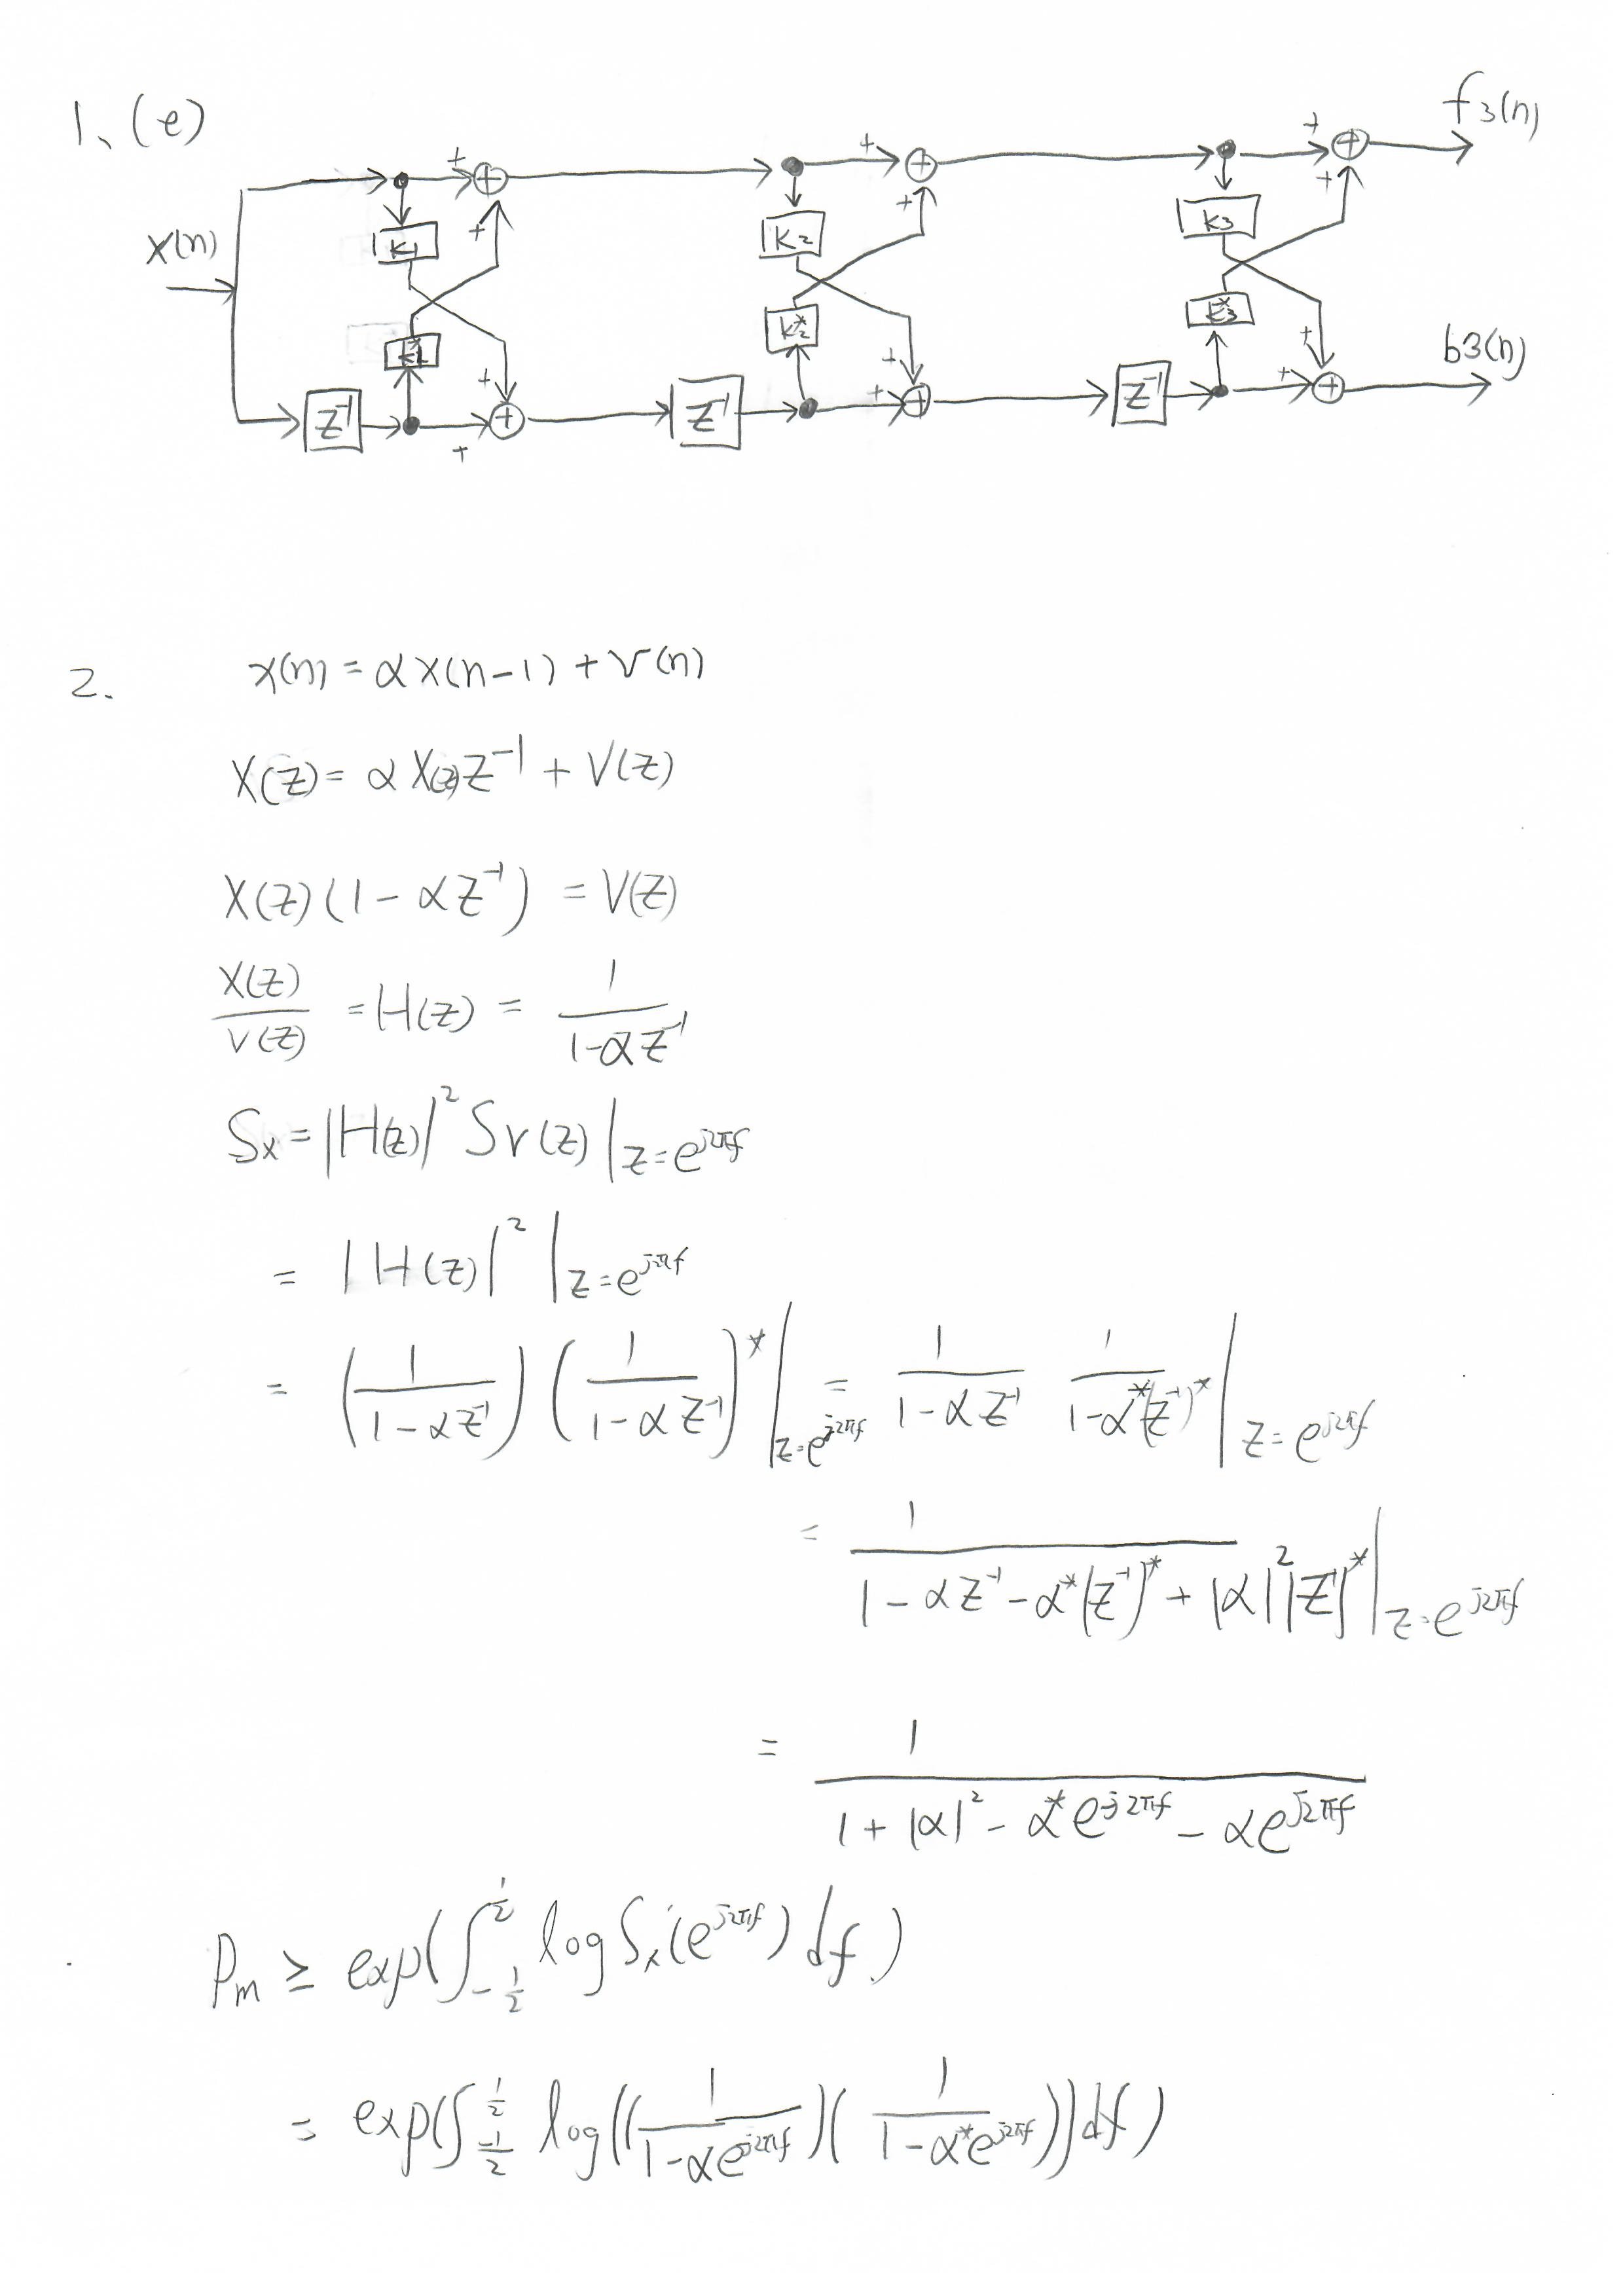 1、(e)
f3(n)
+ + + +
x(n) k1 + k2 + k3 +
k1* k2* k3*
+ + + b3(n)
z⁻¹ + z⁻¹ + z⁻¹ +
2. x(n) = αx(n-1) + v(n)
X(z) = αX(z)z⁻¹ + V(z)
X(z)(1 - αz⁻¹) = V(z)
X(z)/V(z) = H(z) = 1/(1-αz⁻¹)
Sx = |H(z)|² Sv(z)|z=e^{j2πf}
= |H(z)|² |z=e^{j2πf}
= (1/(1-αz⁻¹)) (1/(1-αz⁻¹))* |z=e^{j2πf} = 1/(1-αz⁻¹) 1/(1-α*(z⁻¹)*) |z=e^{j2πf}
= 1/(1 - αz⁻¹ - α*(z⁻¹)* + |α|²|z⁻¹|*) |z=e^{j2πf}
= 1/(1 + |α|² - α*e^{j2πf} - αe^{j2πf})
Pm ≥ exp(∫_{-1/2}^{1/2} log Sx(e^{j2πf}) df)
= exp(∫_{-1/2}^{1/2} log((1/(1-αe^{j2πf}))(1/(1-α*e^{j2πf}))) df)